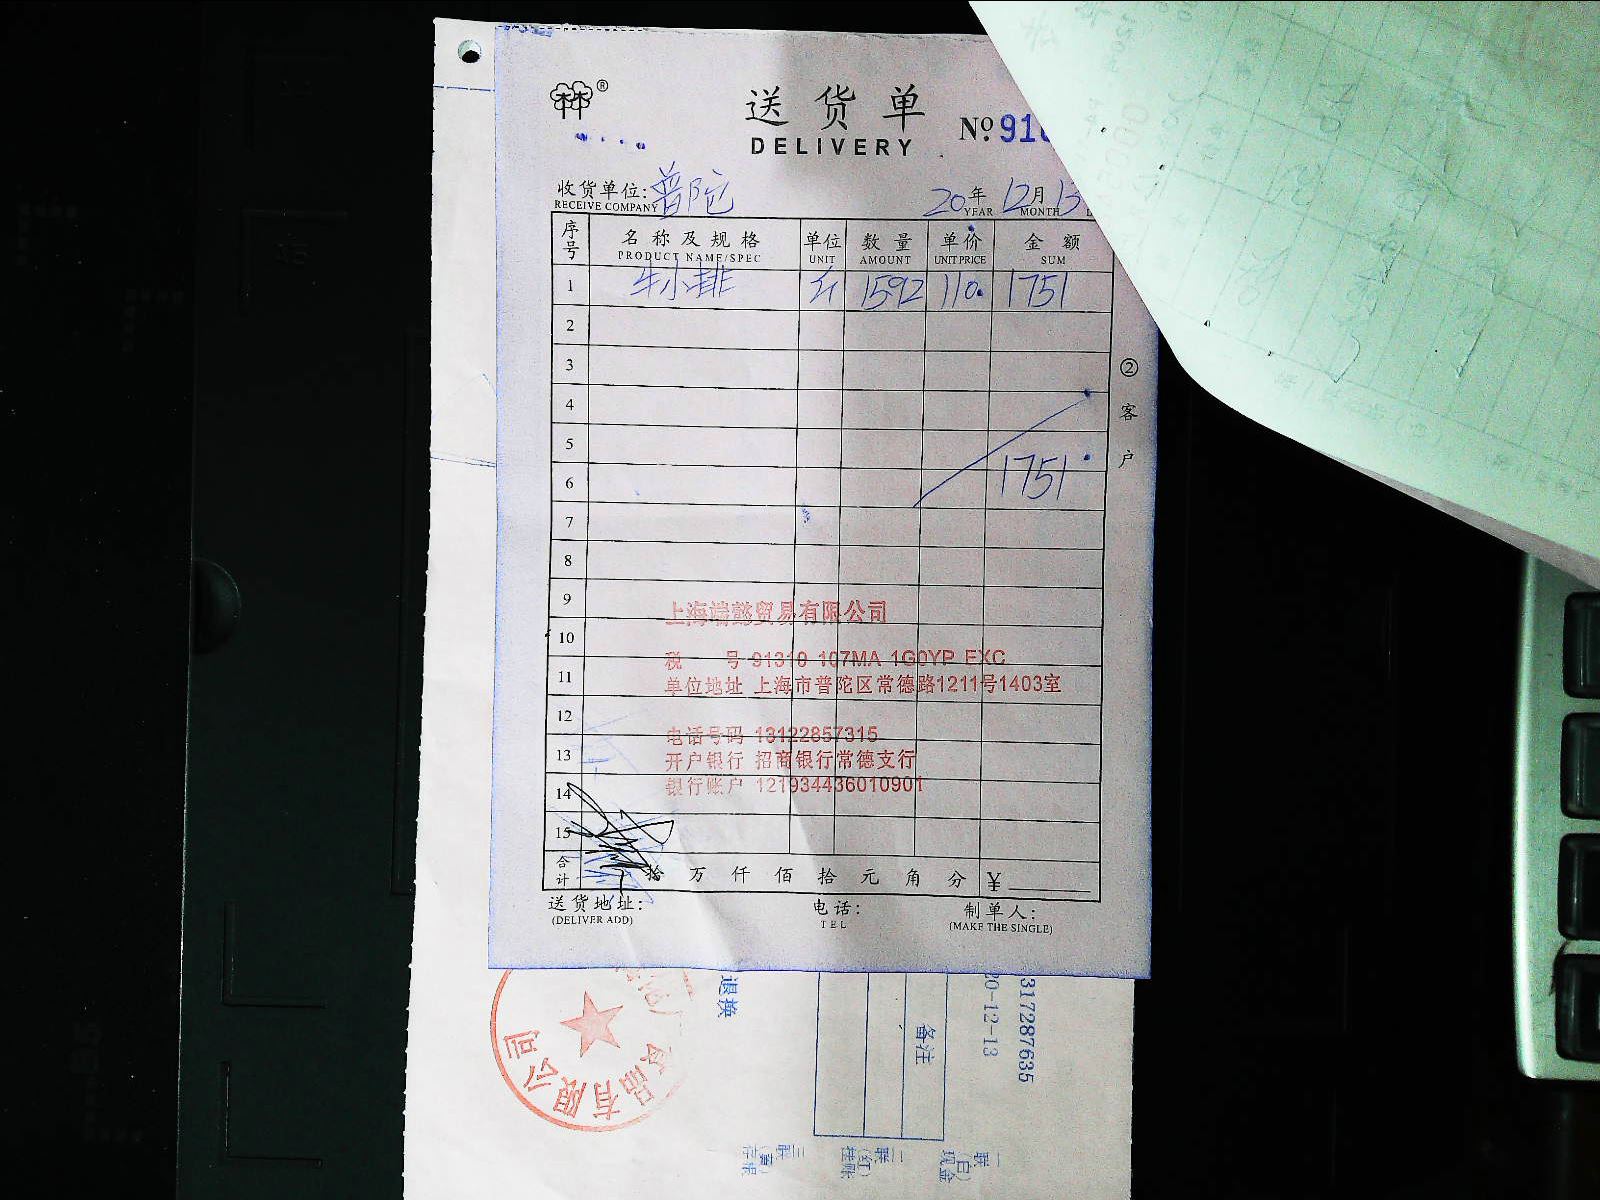 ®
送货单
DELIVERY
№ 91
收货单位: 普陀
RECEIVE COMPANY
20年 12月 13
YEAR MONTH
序号 名称及规格 单位 数量 单价 金额
PRODUCT NAME/SPEC UNIT AMOUNT UNIT PRICE SUM
1 牛小排 斤 1592 110. 1751
2
3
4
5
6 1751
7
8
9
10
11
12
13
14
15
② 客户
上海端懿贸易有限公司
税 号 91310 107MA 1G0YP EXC
单位地址 上海市普陀区常德路1211号1403室
电话号码 13122857315
开户银行 招商银行常德支行
银行账户 121934436010901
合计 拾 万 仟 佰 拾 元 角 分 ¥
送货地址: 电话: 制单人:
(DELIVER ADD) TEL (MAKE THE SINGLE)
退换
备注
317287635
20-12-13
食品有限公司
一联(白)现金
二联(红)挂账
三联